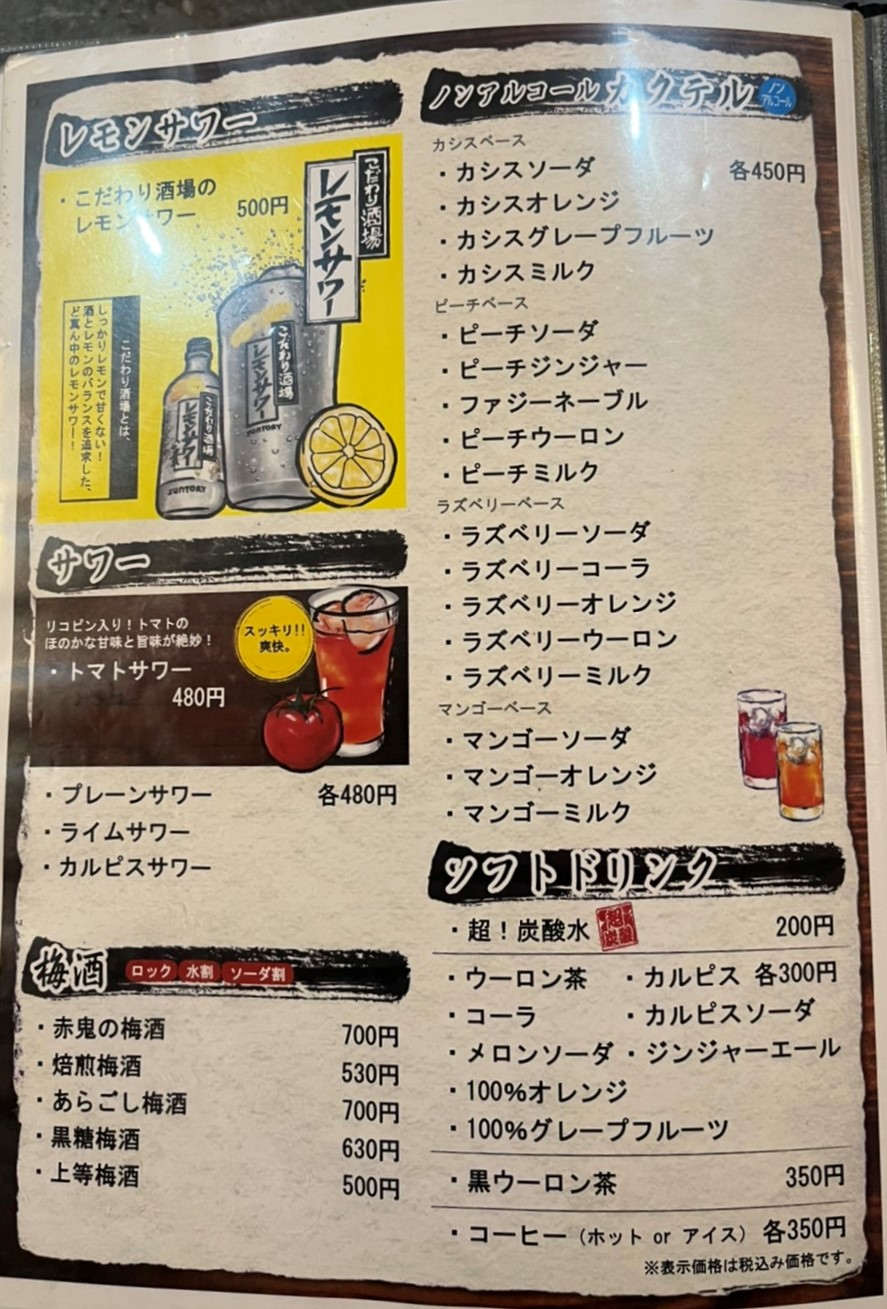 レモンサワー
・こだわり酒場の
レモンサワー 500円
こだわり酒場
レモンサワー
こだわり酒場とは、
しっかりレモンで甘くない！
酒とレモンのバランスを追求した、
ど真ん中のレモンサワー！
こだわり酒場
レモンサワー
SUNTORY
こだわり酒場
レモンサワー
SUNTORY
サワー
リコピン入り！トマトの
ほのかな甘味と旨味が絶妙！
・トマトサワー
480円
スッキリ!!
爽快。
・プレーンサワー 各480円
・ライムサワー
・カルピスサワー
梅酒 ロック 水割 ソーダ割
・赤鬼の梅酒 700円
・焙煎梅酒 530円
・あらごし梅酒 700円
・黒糖梅酒 630円
・上等梅酒 500円
ノンアルコールカクテル ノン
アルコール
カシスベース
・カシスソーダ 各450円
・カシスオレンジ
・カシスグレープフルーツ
・カシスミルク
ピーチベース
・ピーチソーダ
・ピーチジンジャー
・ファジーネーブル
・ピーチウーロン
・ピーチミルク
ラズベリーベース
・ラズベリーソーダ
・ラズベリーコーラ
・ラズベリーオレンジ
・ラズベリーウーロン
・ラズベリーミルク
マンゴーベース
・マンゴーソーダ
・マンゴーオレンジ
・マンゴーミルク
ソフトドリンク
・超！炭酸水 200円
・ウーロン茶 ・カルピス 各300円
・コーラ ・カルピスソーダ
・メロンソーダ ・ジンジャーエール
・100%オレンジ
・100%グレープフルーツ
・黒ウーロン茶 350円
・コーヒー（ホット or アイス） 各350円
※表示価格は税込み価格です。